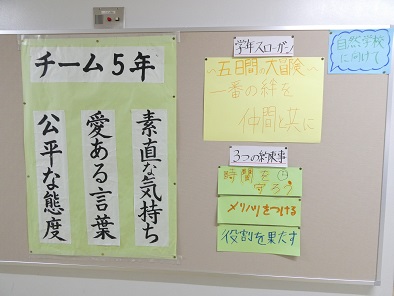 チーム5年
素直な気持ち
愛ある言葉
公平な態度
学年スローガン
〜五日間の大冒険〜
一番の絆を
仲間と共に
自然学校
に向けて
3つの約束事
時間を
守ろう
メリハリをつける
役割を果たす